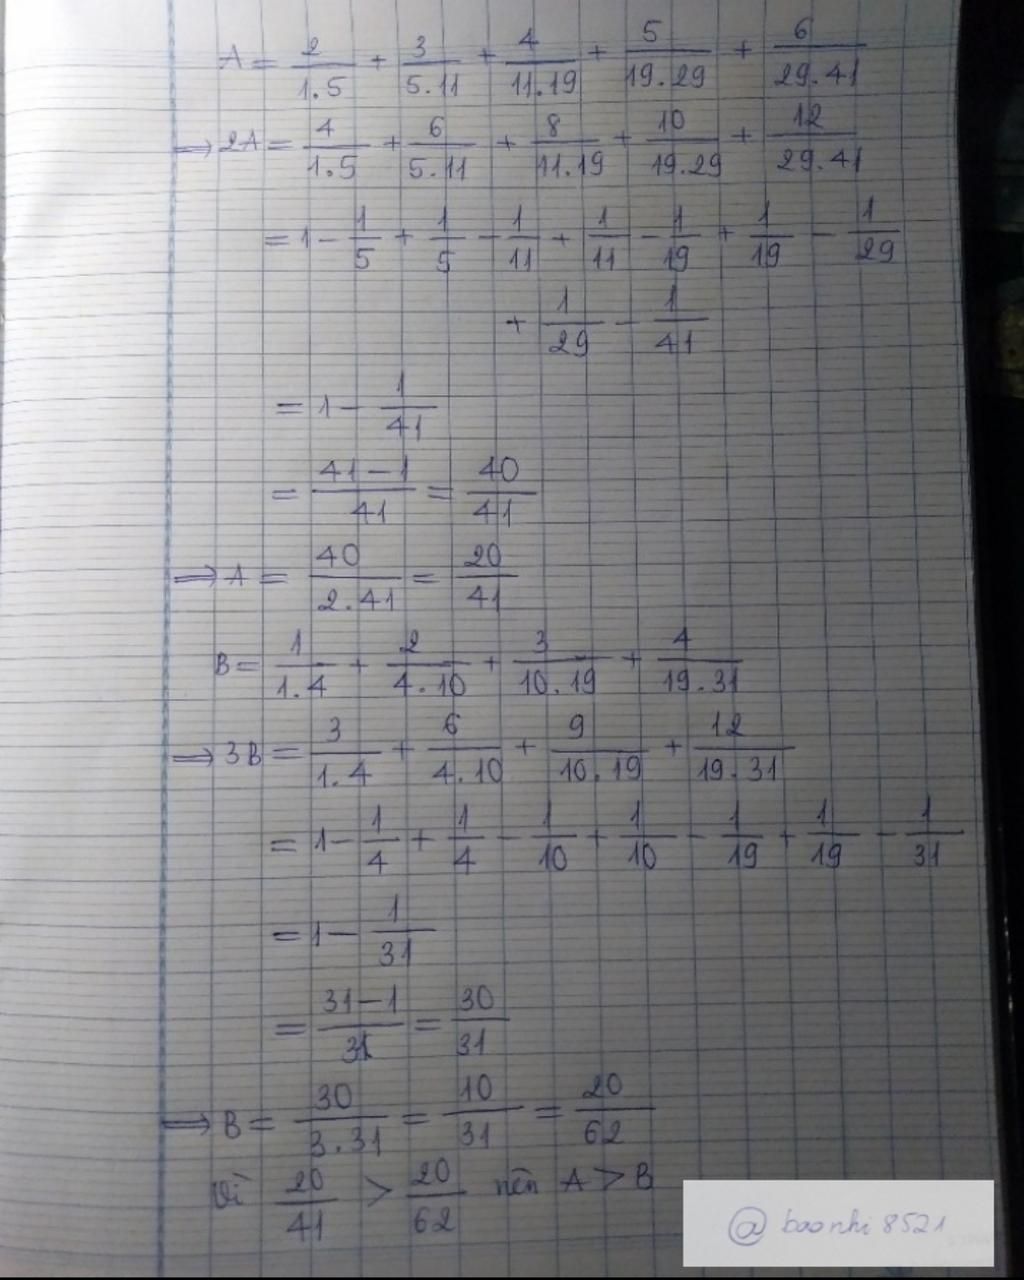 A = 2/1.5 + 3/5.11 + 4/11.19 + 5/19.29 + 6/29.41
⟹ 2A = 4/1.5 + 6/5.11 + 8/11.19 + 10/19.29 + 12/29.41
= 1 - 1/5 + 1/5 - 1/11 + 1/11 - 1/19 + 1/19 - 1/29
+ 1/29 - 1/41
= 1 - 1/41
= 41-1/41 = 40/41
⟹ A = 40/2.41 = 20/41
B = 1/1.4 + 2/4.10 + 3/10.19 + 4/19.31
⟹ 3B = 3/1.4 + 6/4.10 + 9/10.19 + 12/19.31
= 1 - 1/4 + 1/4 - 1/10 + 1/10 - 1/19 + 1/19 - 1/31
= 1 - 1/31
= 31-1/31 = 30/31
⟹ B = 30/3.31 = 10/31 = 20/62
Vì 20/41 > 20/62 nên A > B
@baonhi8521